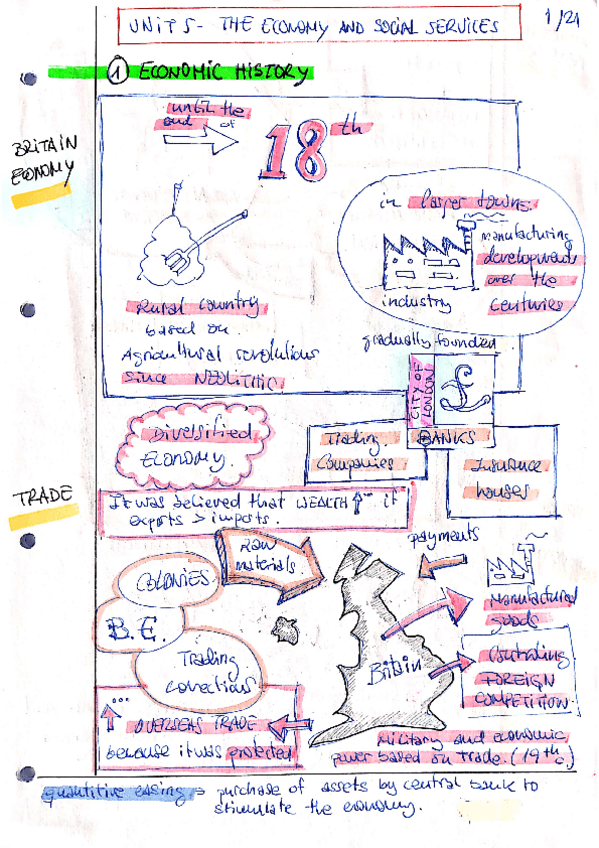 UNIT 5 - THE ECONOMY AND SOCIAL SERVICES
1/21
① ECONOMIC HISTORY
BRITAIN
ECONOMY
until the
end of
18th
in larger towns.
manufacturing
developments
over the
centuries
industry
Rural country
based on
Agricultural revolutions
since NEOLITHIC
gradually founded
CITY OF
LONDON
£
BANKS
Trading
Companies
Insurance
houses
Diversified
ECONOMY.
TRADE
It was believed that WEALTH ↑... if
exports > imports.
Raw
materials
payments
COLONIES
B.E.
Trading
conections
Britain
Manufactured
goods
Controlling
FOREIGN
COMPETITION
↑... OVERSEAS TRADE
because it was protected
Military and economic
power based on trade. (19th c)
quantitive easing → purchase of assets by central bank to
stimulate the economy.